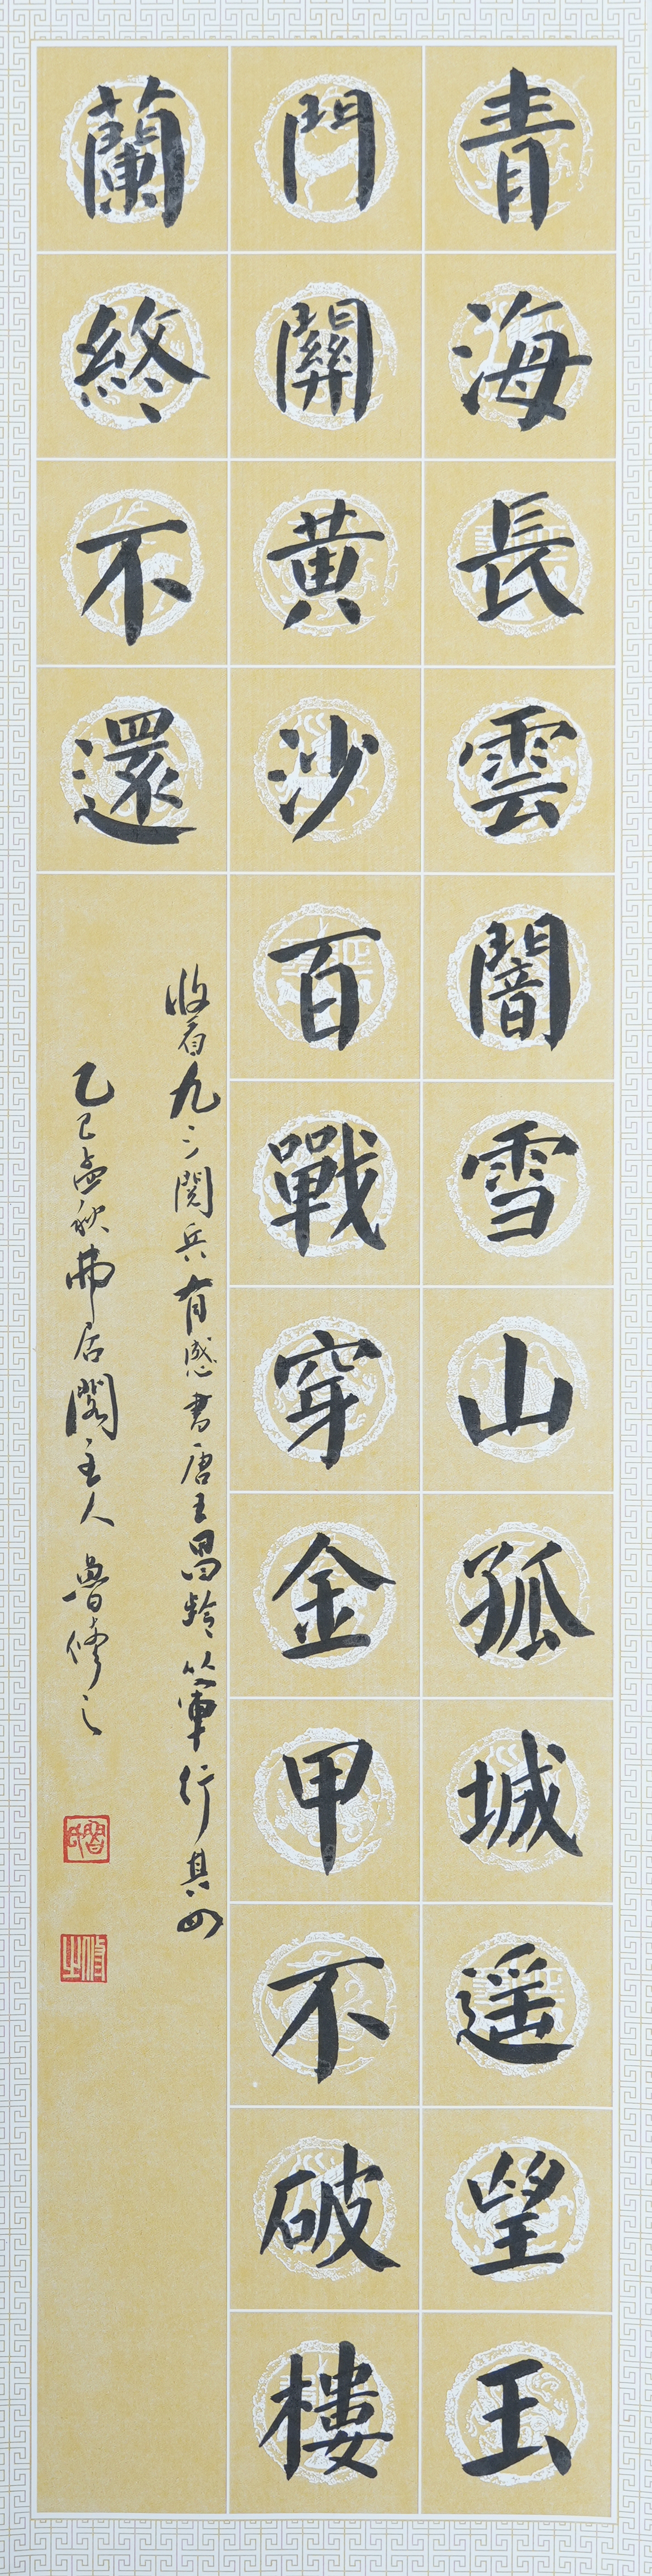 青海長雲闇雪山孤城遥望玉
門關黃沙百戰穿金甲不破樓
蘭終不還
收看九三閱兵有感書唐王昌齡從軍行其四
乙巳孟秋弗居閣主人魯修之
魯氏
修之